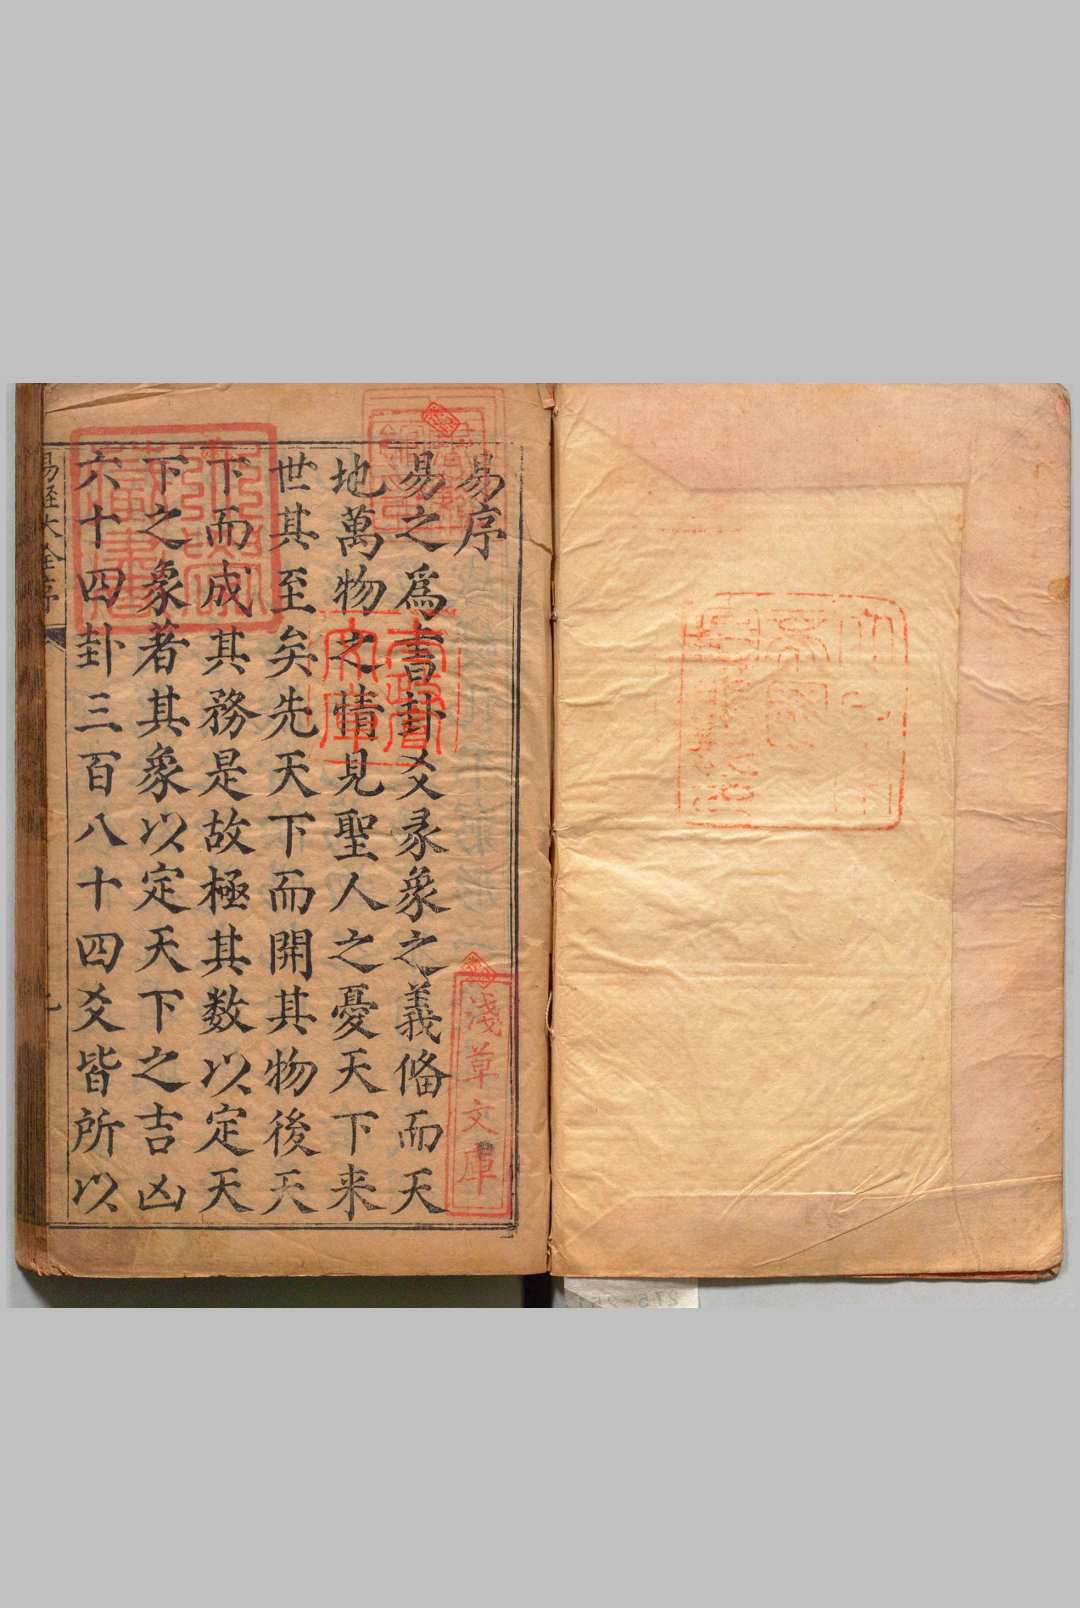 易序
易之爲書卦爻彖象之義俻而天
地萬物之情見聖人之憂天下来
世其至矣先天下而開其物後天
下而成其務是故極其数以定天
下之象著其象以定天下之吉凶
六十四卦三百八十四爻皆所以
易經大全序
淺草文庫